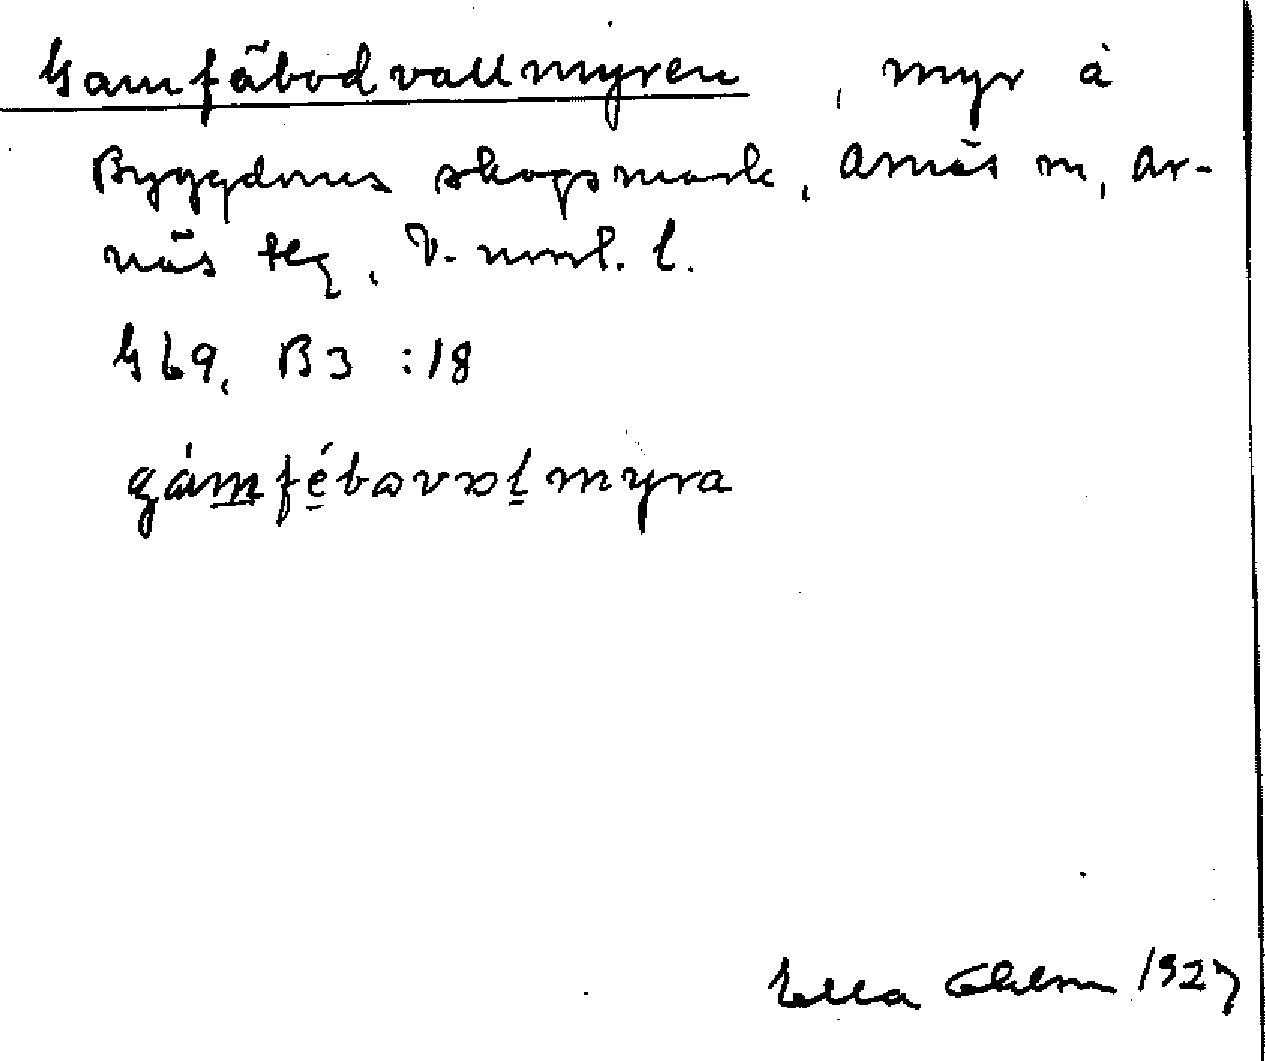 Gamfäbodvallmyren, myr å
Bygdens skogsmark, Arnäs sn, Ar-
näs tlg, V. norrl. l.
G b9, B3 :18
gámfébɷvɷlmyra
Ella Ohlson 1927